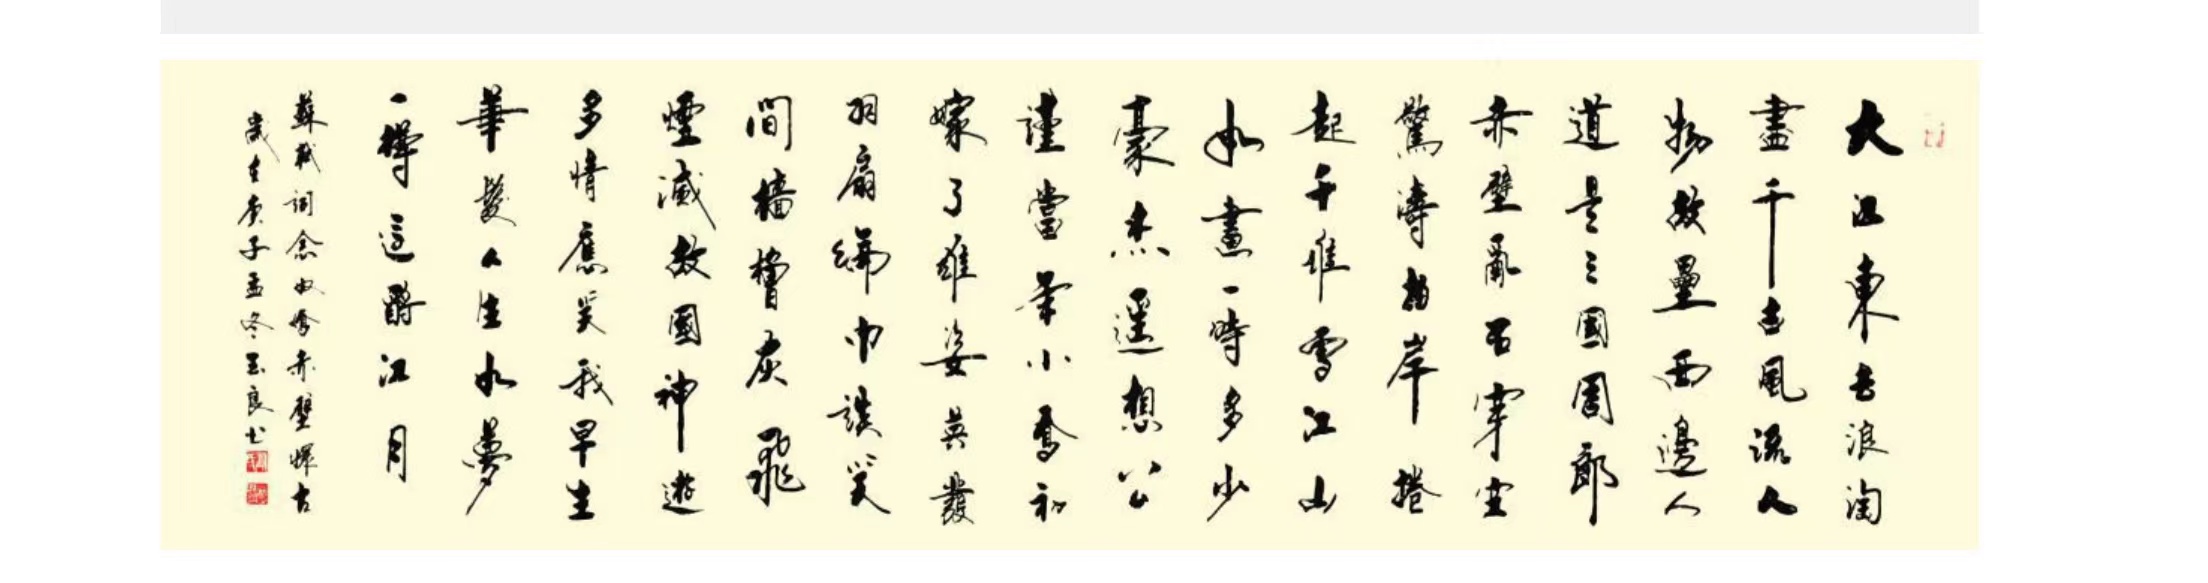 大江東去浪淘
盡千古風流人
物故壘西邊人
道是三國周郎
赤壁亂石穿空
驚濤拍岸捲
起千堆雪江山
如畫一時多少
豪杰遥想公
謹當年小喬初
嫁了雄姿英發
羽扇綸巾談笑
間檣櫓灰飛
煙滅故國神遊
多情應笑我早生
華髮人生如夢
一樽還酹江月
蘇軾詞念奴嬌赤壁懷古
歲在庚子孟冬玉良书